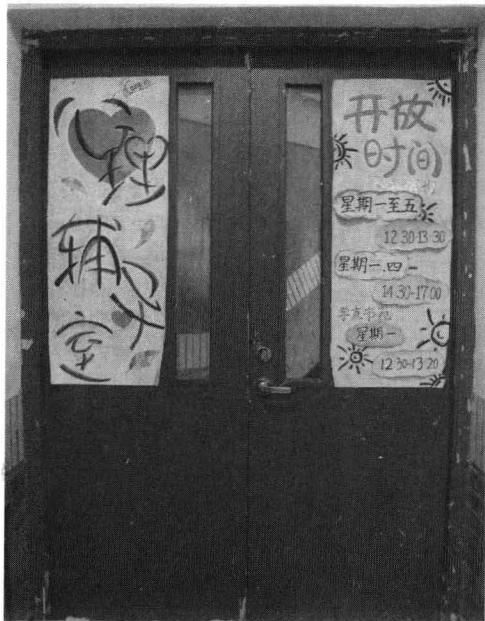 心理
辅导
室
开放
时间
星期一至五
12:30-13:30
星期一.四
14:30-17:00
星期一
12:30-13:20